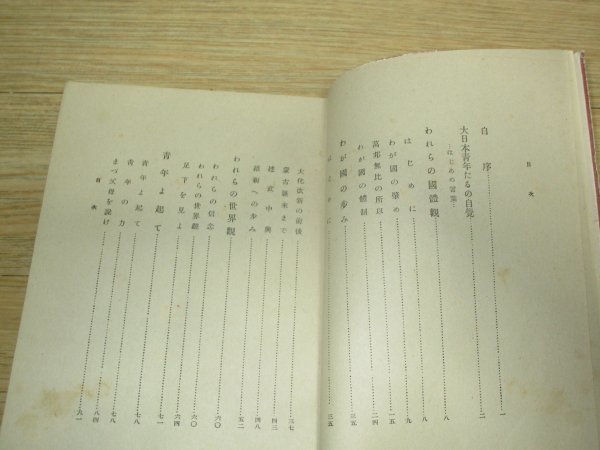 目次
自序……一
大日本青年たるの自覺……二
…はじめの言葉…
われらの國體觀……八
はじめに……八
わが國の肇め……九
萬邦無比の所以……一五
わが國の體制……二四
わが國の歩み……三五
はじめに……三五
大化改新の前後……三七
蒙古襲來まで……四三
建武中興……四八
維新への歩み……五二
われらの世界觀……六〇
われらの信念……六〇
われらの世界觀……六四
足下を見よ……七一
青年よ起て……七八
青年よ起て……七八
青年の力……八四
まづ父母を説け……九一
目次